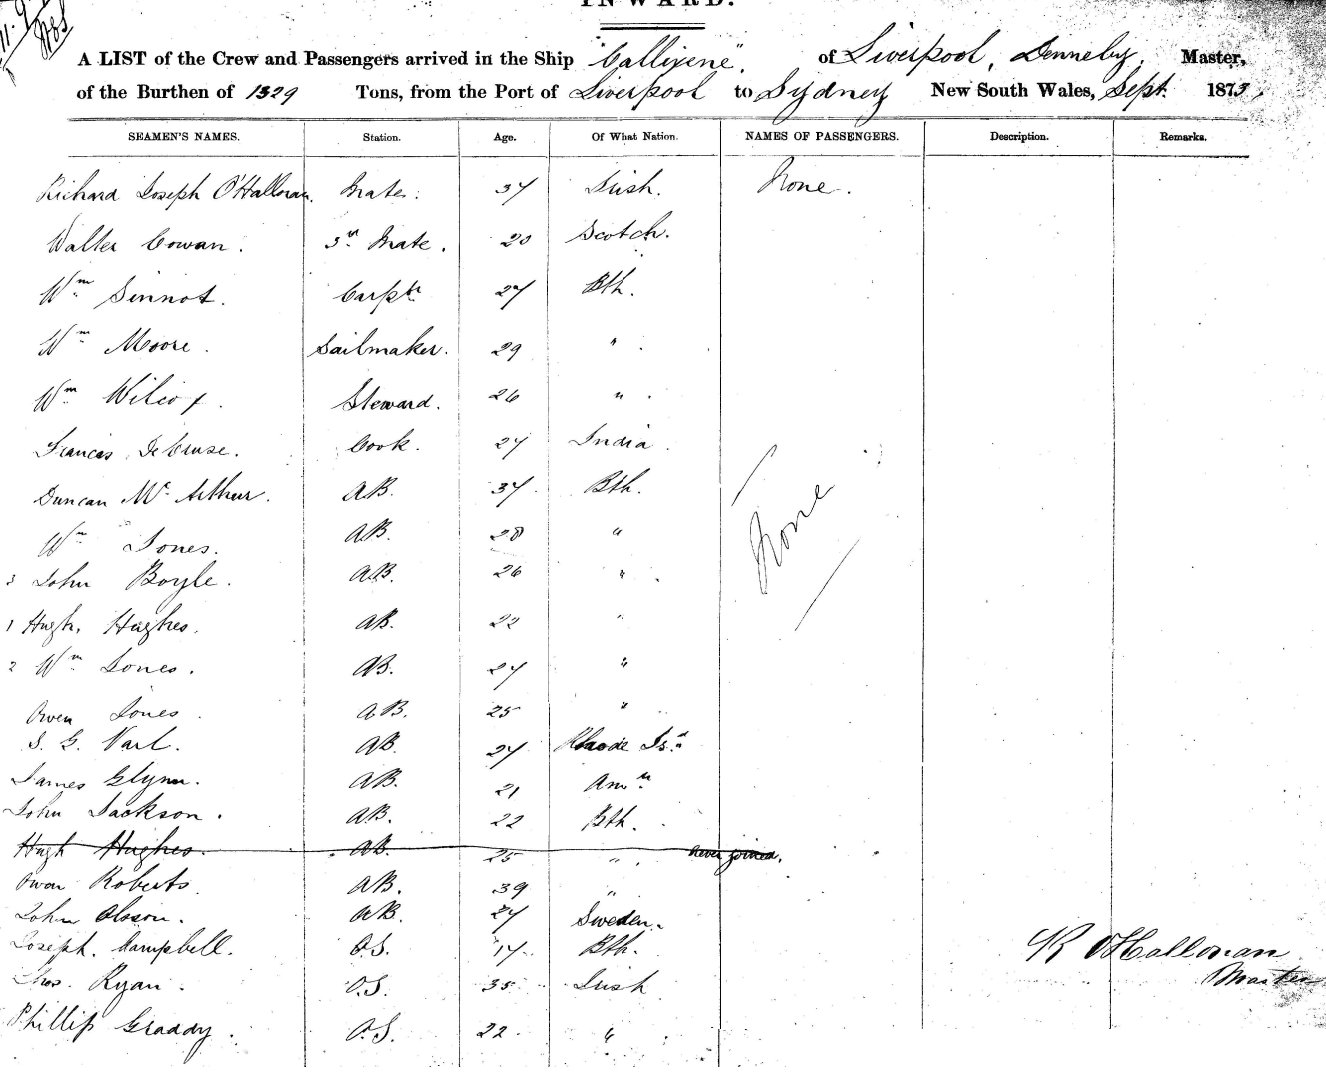 INWARD.
A LIST of the Crew and Passengers arrived in the Ship "Callixene", of Liverpool, Dennehy, Master,
of the Burthen of 1329 Tons, from the Port of Liverpool to Sydney New South Wales, Sept. 1873,
SEAMEN'S NAMES. Station. Age. Of What Nation. NAMES OF PASSENGERS. Description. Remarks.
Richard Joseph O'Halloran. Mate. 37 Irish. None.
Walter Cowan. 3rd Mate. 20 Scotch.
Wm Sinnot. Carptr 27 Bth.
Wm Moore. Sailmaker. 29 " .
Wm Wilcox. Steward. 26 " .
Francis De Cruse. Cook. 27 India
Duncan Mc Arthur. AB. 37 Bth.
Wm Jones. AB. 28 "
None
3 John Boyle. AB. 26 " .
1 Hugh Hughes. AB. 22 "
2 Wm Jones. AB. 27 "
Owen Jones. AB. 25 "
S. G. Vail. AB 27 Rhode Isd
James Glynn. AB. 21 Amn
John Jackson. AB. 22 Bth.
Hugh Hughes. AB. 25 " . never joined.
Owen Roberts. AB. 39 "
John Olsson. AB. 27 Sweden.
Joseph. Campbell. O.S. 17 Bth.
R O'Halloran
Master
Thos. Ryan. O.S. 35 Irish
Phillip Graddy. O.S. 22 "